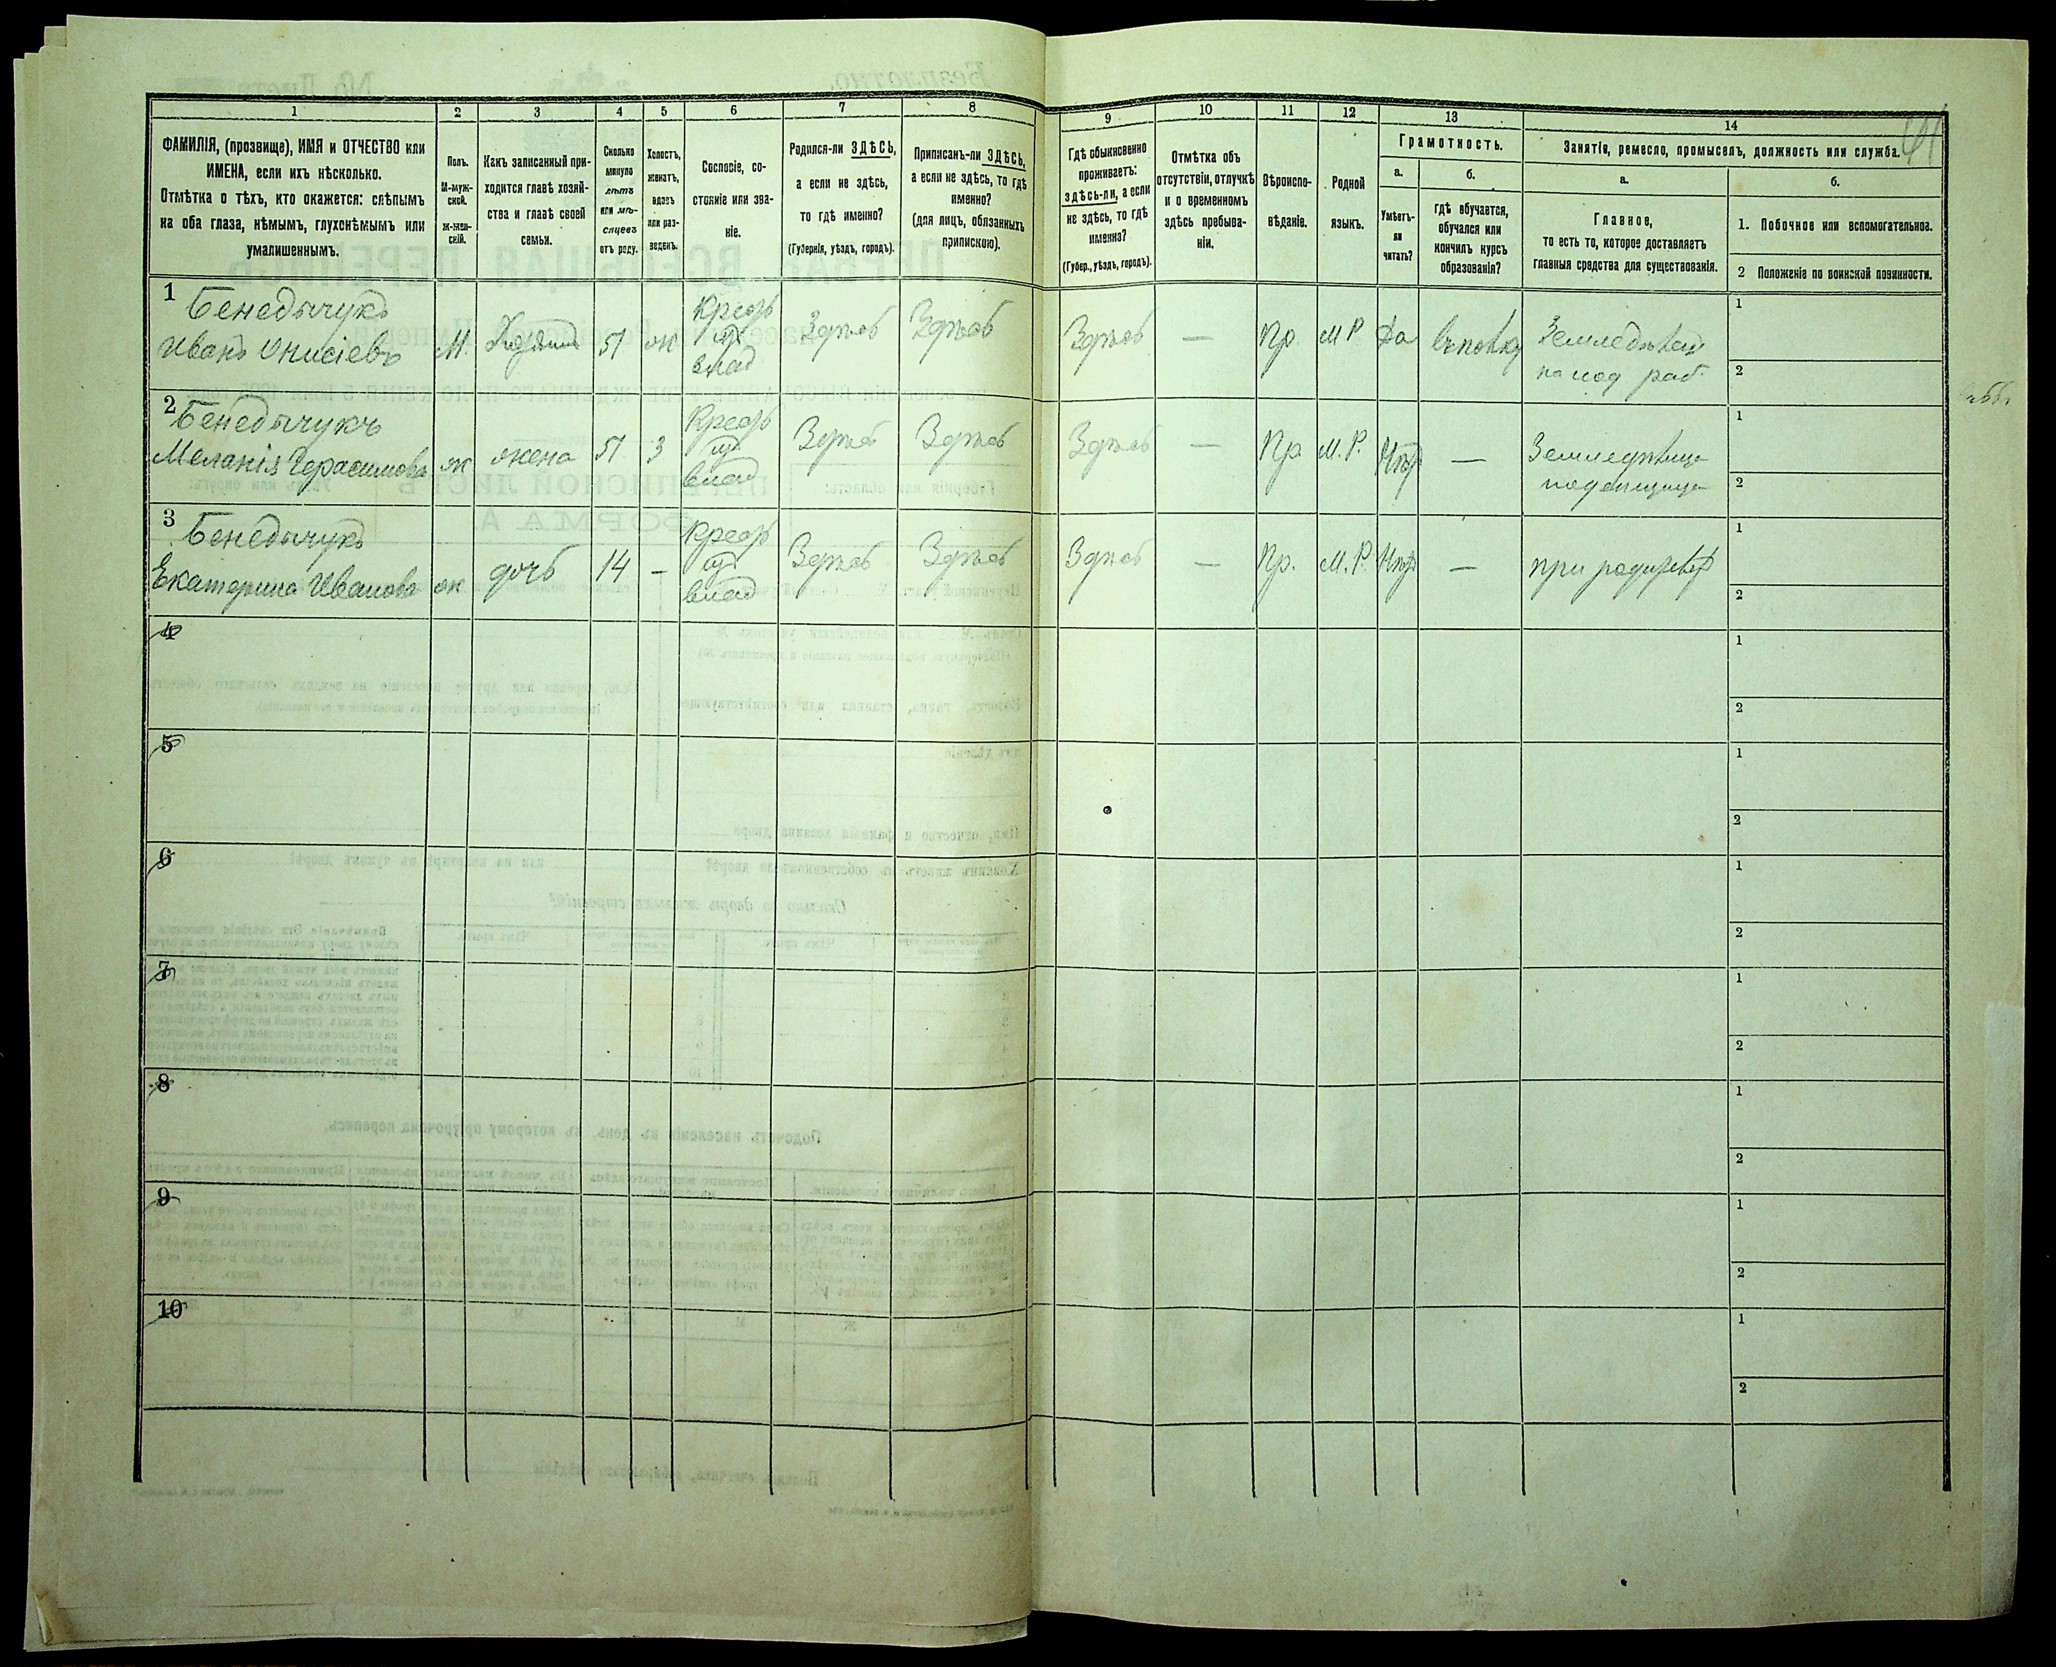 1 2 3 4 5 6 7 8 9 10 11 12 13 14
ФАМИЛІЯ, (прозвище), ИМЯ и ОТЧЕСТВО или
ИМЕНА, если ихъ нѣсколько.
Отмѣтка о тѣхъ, кто окажется: слѣпымъ
на оба глаза, нѣмымъ, глухонѣмымъ или
умалишеннымъ.
Полъ.
М-муж-
ской.
Ж-жен-
скій.
Какъ записанный при-
ходится главѣ хозяй-
ства и главѣ своей
семьи.
Сколько
минуло
лѣтъ
или мѣ-
сяцевъ
отъ роду.
Холостъ,
женатъ,
вдовъ
или раз-
веденъ.
Сословіе, со-
стояніе или зва-
ніе.
Родился-ли ЗДѢСЬ,
а если не здѣсь,
то гдѣ именно?
(Губернія, уѣздъ, городъ).
Приписанъ-ли ЗДѢСЬ,
а если не здѣсь, то гдѣ
именно?
(для лицъ, обязанныхъ
припискою).
Гдѣ обыкновенно
проживаетъ:
здѣсь-ли, а если
не здѣсь, то гдѣ
именно?
(Губер., уѣздъ, городъ).
Отмѣтка объ
отсутствіи, отлучкѣ
и о временномъ
здѣсь пребыва-
ніи.
Вѣроиспо-
вѣданіе.
Родной
языкъ.
Грамотность.
а.
Умѣетъ-
ли
читать?
б.
гдѣ обучается,
обучался или
кончилъ курсъ
образованія?
Занятіе, ремесло, промыселъ, должность или служба.
а.
Главное,
то есть то, которое доставляетъ
главныя средства для существованія.
б.
1. Побочное или вспомогательное.
2 Положеніе по воинской повинности.
1 Бенедычукъ
Иванъ Онисіевъ М. Хозяинъ 51 ж Крест. Здѣсь Здѣсь Здѣсь — Пр. М Р Да 1
2
2 Бенедычукъ
Меланія Герасимова ж жена 51 З Крест. Здѣсь Здѣсь Здѣсь — Пр. М. Р. Нѣт — 1
2
3 Бенедычукъ
Екатерина Иванова ж дочь 14 — Крест. Здѣсь Здѣсь Здѣсь — Пр. М. Р. Нѣт — при 1
2
4 1
2
5 1
2
6 1
2
7 1
2
8 1
2
9 1
2
10 1
2